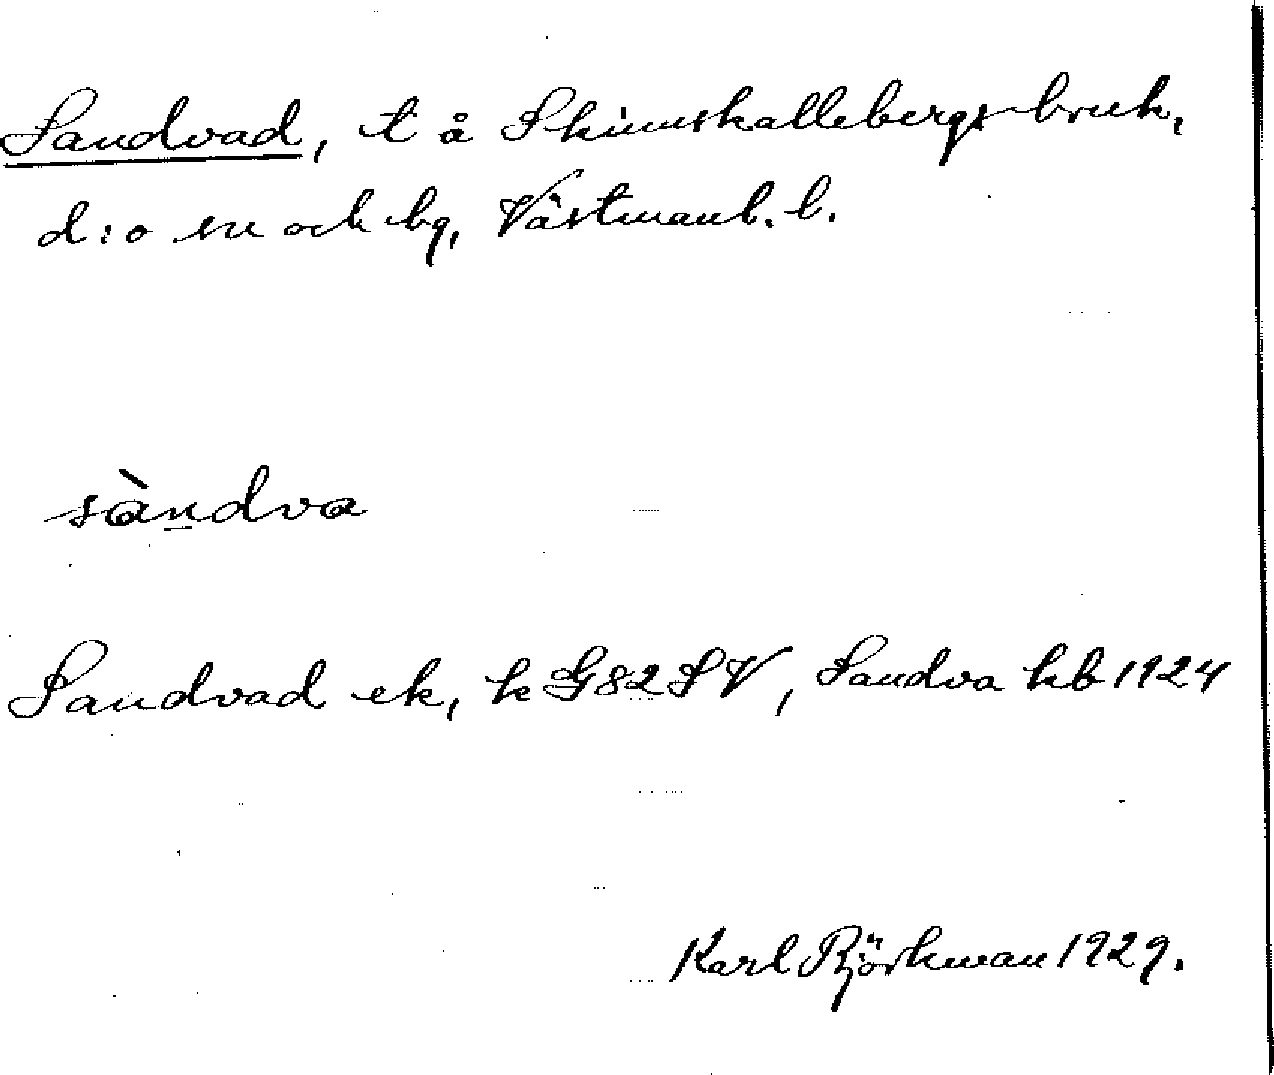 Sandvad, t å Skinnskattebergs bruk,
d:o sn och bg, Västmanl. l.
sàndva
Sandvad ek, k G82SV, Sandva kb 1924
Karl Björkman 1929.